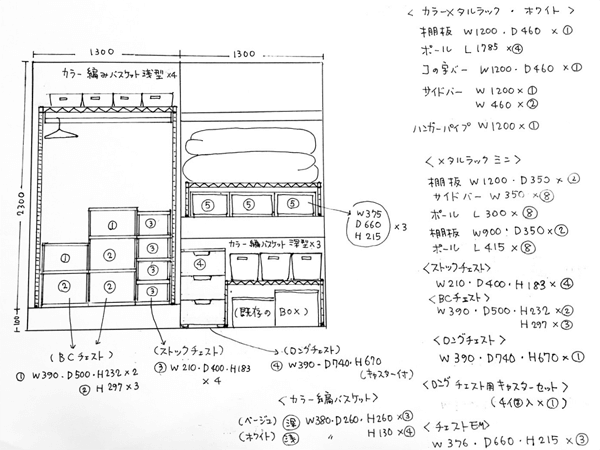 1300 1300
カラー編みバスケット浅型×4
2300
100
① ③
① ② ③
② ② ③
③
⑤ ⑤ ⑤
④
カラー編バスケット深型×3
(既存の BOX)
W375
D660
H215
×3
(BCチェスト)
① W390.D500.H232×2
② H297×3
(ストックチェスト)
③ W210.D400.H183
×4
(ロングチェスト)
④ W390-D740-H670
(キャスター付)
<カラー編バスケット>
(ベージュ) 深 W380.D260.H260×③
(ホワイト) 浅 〃 H130×④
<カラーメタルラック・ホワイト>
棚板 W1200.D460×①
ポール L1785×④
コの字バー W1200.D460×①
サイドバー W1200×①
W460×②
ハンガーパイプ W1200×①
<メタルラックミニ>
棚板 W1200.D350×②
サイドバー W350×⑧
ポール L300×⑧
棚板 W900.D350×②
ポール L415×⑧
<ストックチェスト>
W210.D400.H183×④
<BCチェスト>
W390.D500.H232×②
H297×③
<ロングチェスト>
W390.D740.H670×①
<ロングチェスト用キャスターセット>
(4個入×①)
<チェストEM>
W376.D660.H215×③